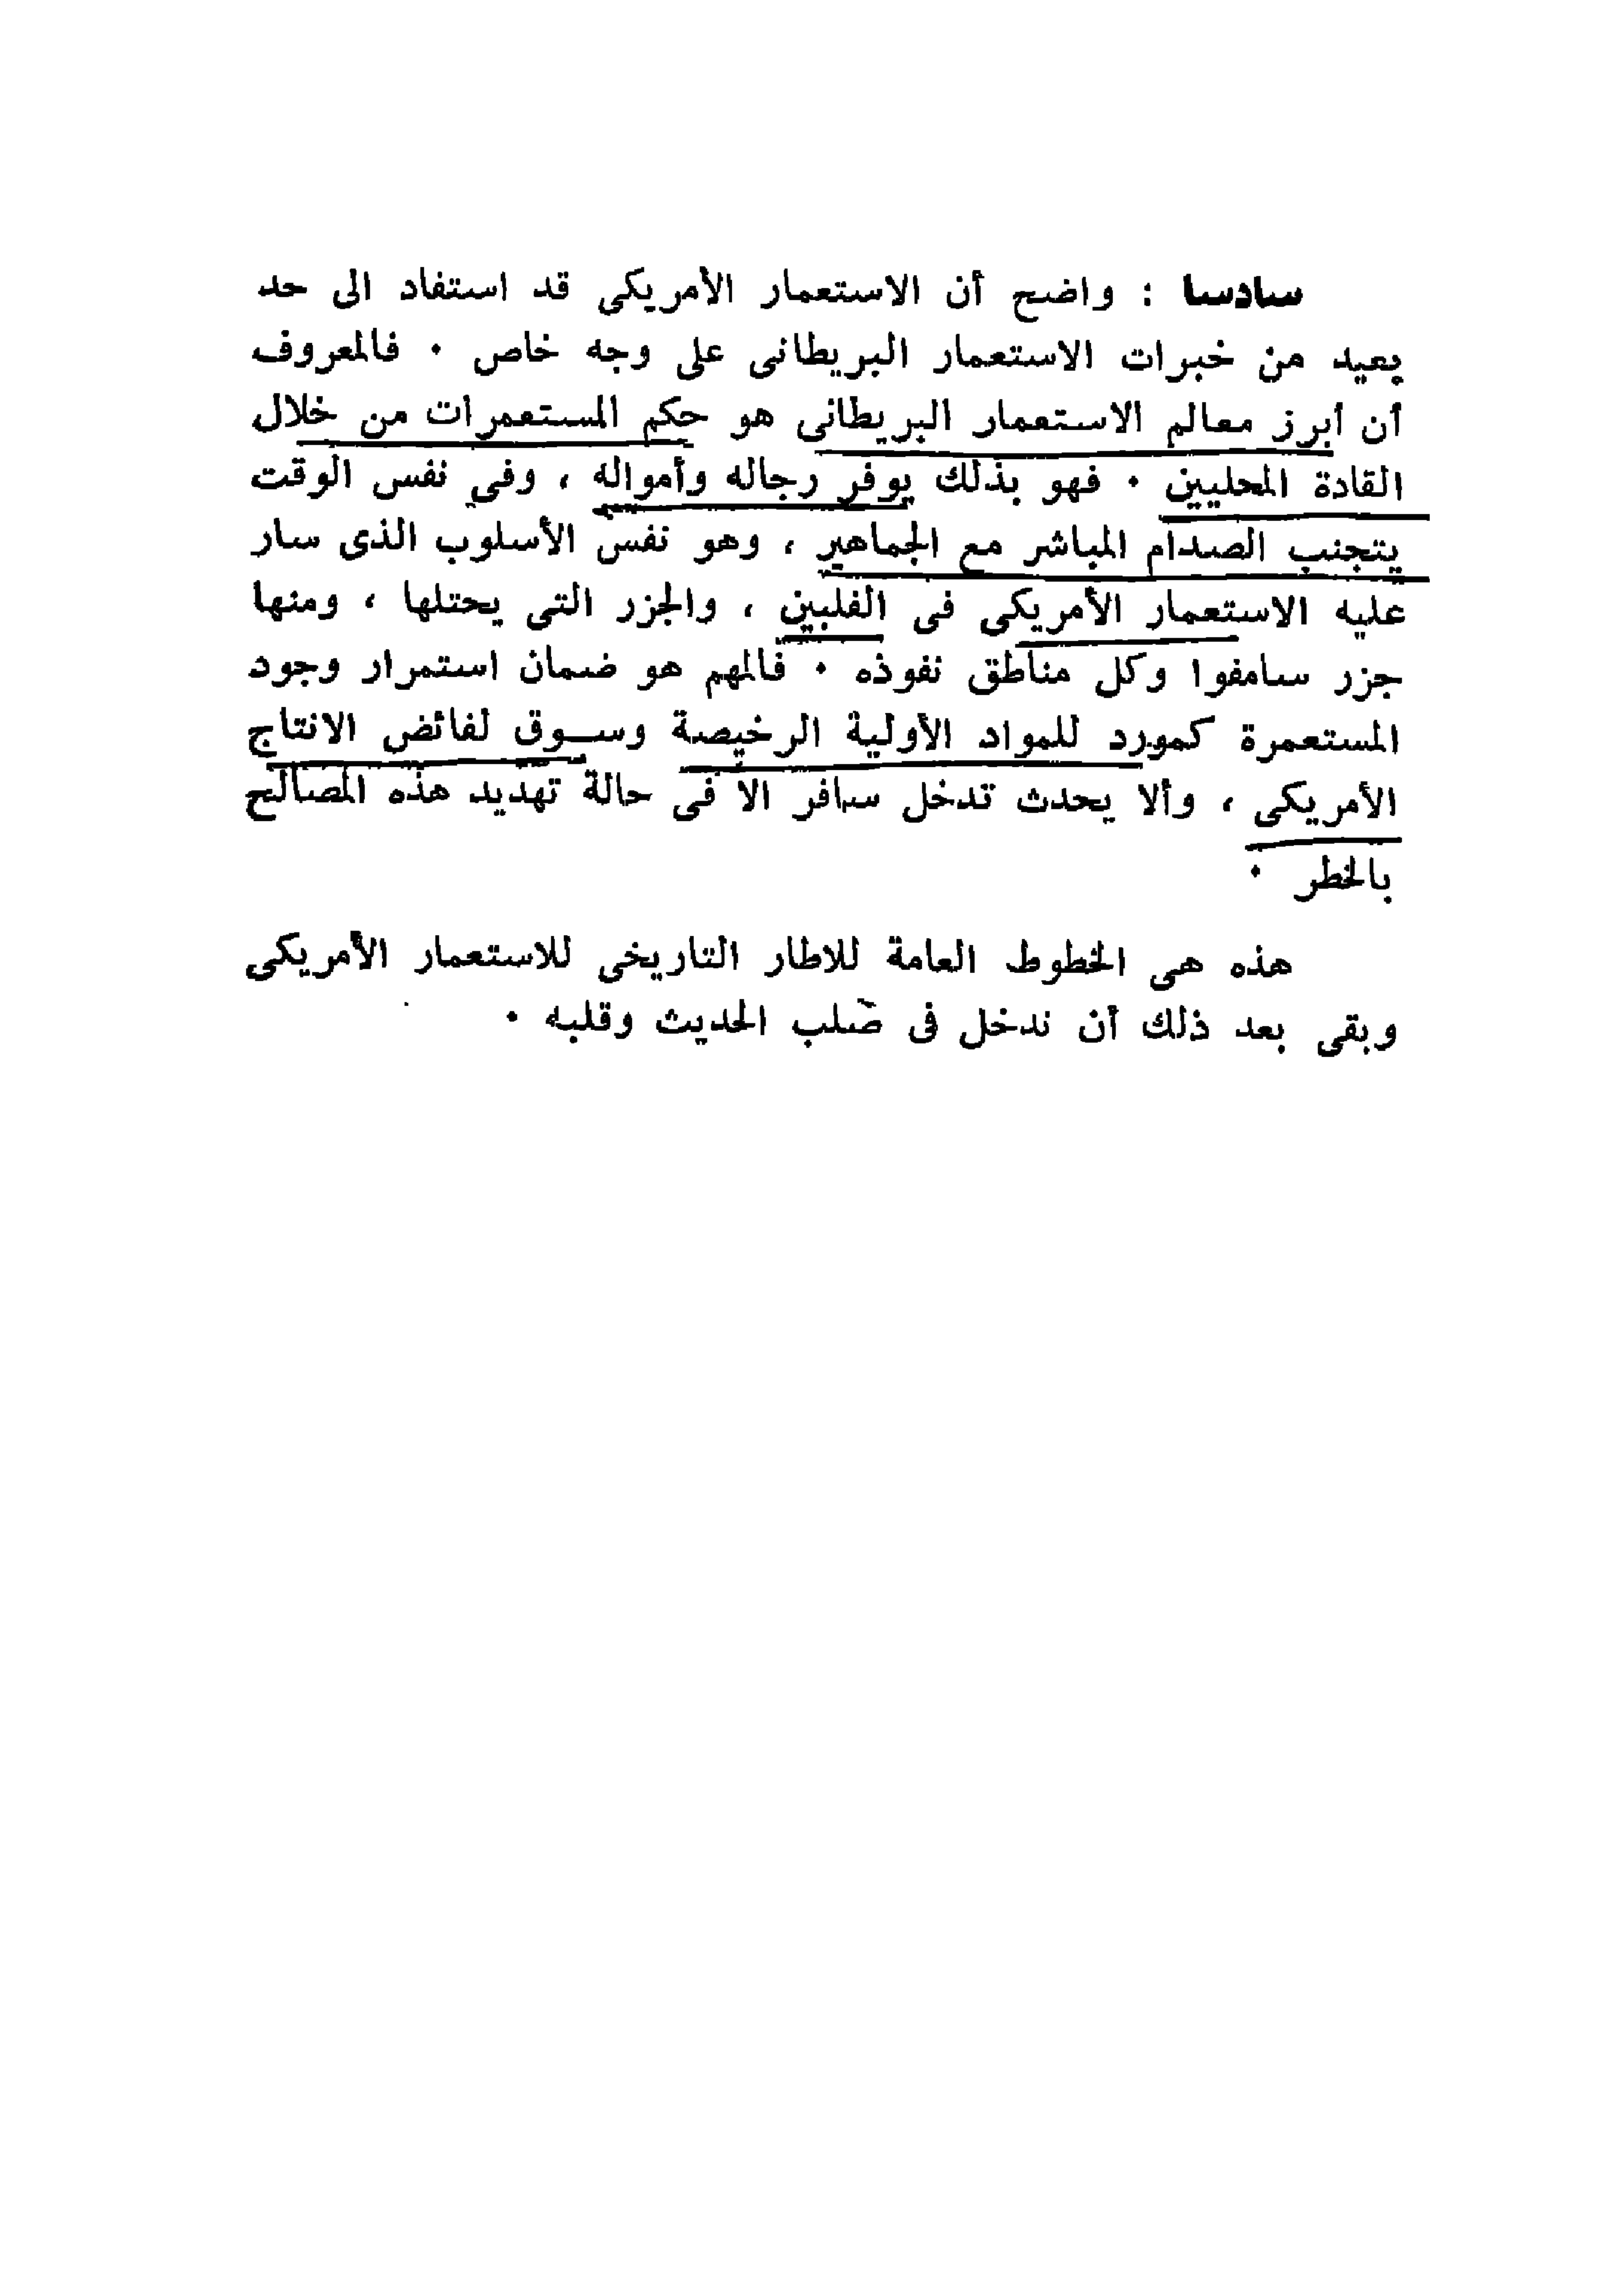 سادسا : واضح أن الاستعمار الأمريكى قد استفاد الى حد
بعيد من خبرات الاستعمار البريطانى على وجه خاص ٠ فالمعروف
أن أبرز معالم الاستعمار البريطانى هو حكم المستعمرات من خلال
القادة المحليين ٠ فهو بذلك يوفر رجاله وأمواله ، وفى نفس الوقت
يتجنب الصدام المباشر مع الجماهير ، وهو نفس الأسلوب الذى سار
عليه الاستعمار الأمريكى فى الفلبين ، والجزر التى يحتلها ، ومنها
جزر سامفوا وكل مناطق نفوذه ٠ فالمهم هو ضمان استمرار وجود
المستعمرة كمورد للمواد الأولية الرخيصة وســوق لفائض الانتاج
الأمريكى ، وألا يحدث تدخل سافر الا فى حالة تهديد هذه المصالح
بالخطر ٠
هذه هى الخطوط العامة للاطار التاريخى للاستعمار الأمريكى
وبقى بعد ذلك أن ندخل فى صلب الحديث وقلبه ٠